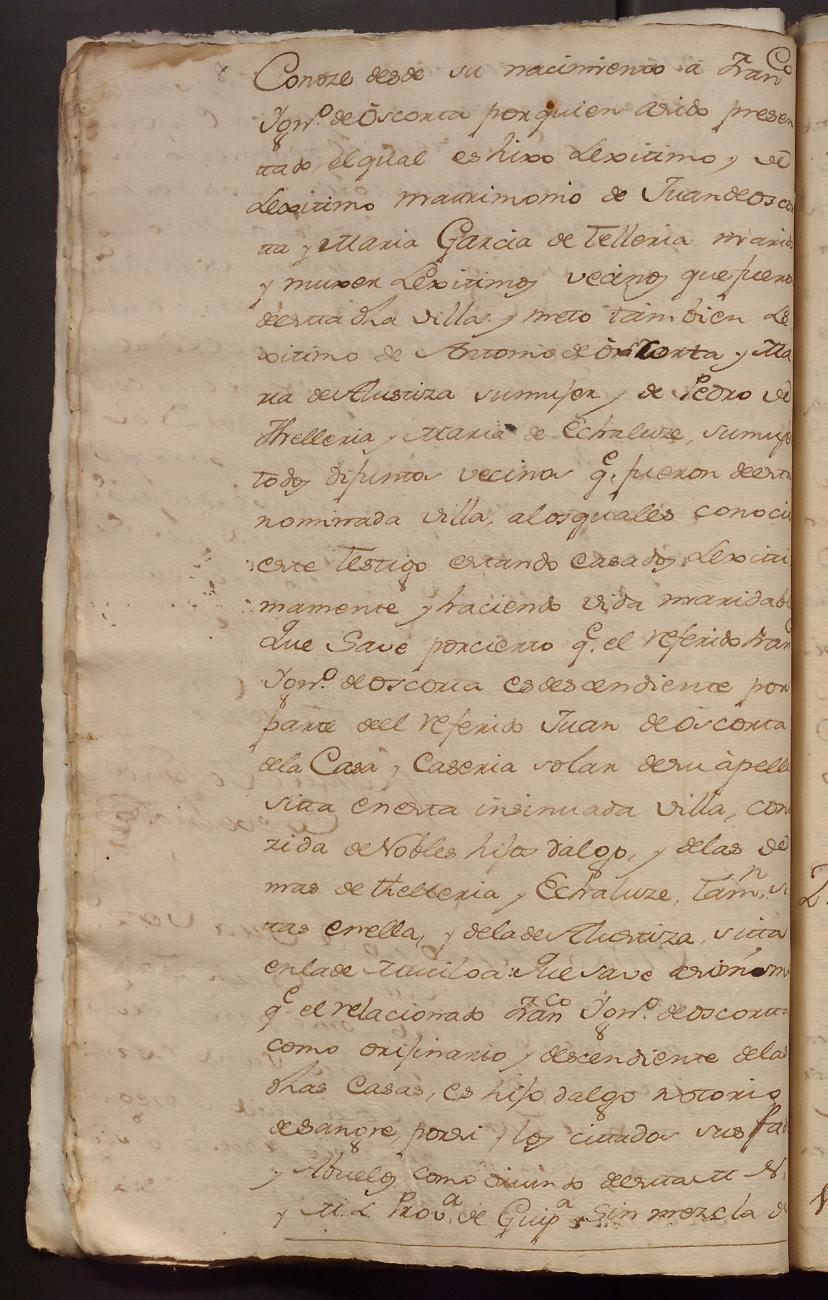 Conoze desde su nacimiento â Fran^co
Ygn^o. de Oscorta por quien asido presen
tado, el qual es hixo Lexitimo, y de
Lexitimo matrimonio de Juan de Osco
ta y Maria Garcia de Telleria marid
y muxer Lexitimos vecinos que fuero
de esta dha villa: y nieto tambien Le
xitimo de Antonio de Oscorta y Ma
ria de Alustiza su mujer y de Pedro de
Thelleria y Maria de Echaluze, su muje
todos difuntos vecinos q^e. fueron de esta
nominada villa, alos quales conoció
este Testigo estando casados Lexiti
mamente y haciendo vida maridab
Que Save por cierto q^e. el referido Fran
Ygn^o. de Oscorta es descendiente por
parte del referido Juan de Oscorta
dela Casa y Caseria solar de su apelli
sitta en esta insinuada villa, con
zida de Nobles hijos dalgo, y delas de
mas de Thelleria y Echaluze, tam^n. si
tas en ella, y dela de Alustiza, sitta
en la de Mutiloa: Que save asimism
q^e el relacionado Fran^co Ygn^o. de Oscorta
como orijinario y descendiente delas
dhas Casas, es hijo dalgo notorio
de sangre, por si y los cittados sus Pa
y Abuelos como oriundo de esta M. N.
y M. L. Prov^a. de Guip^a. Sin mezcla d